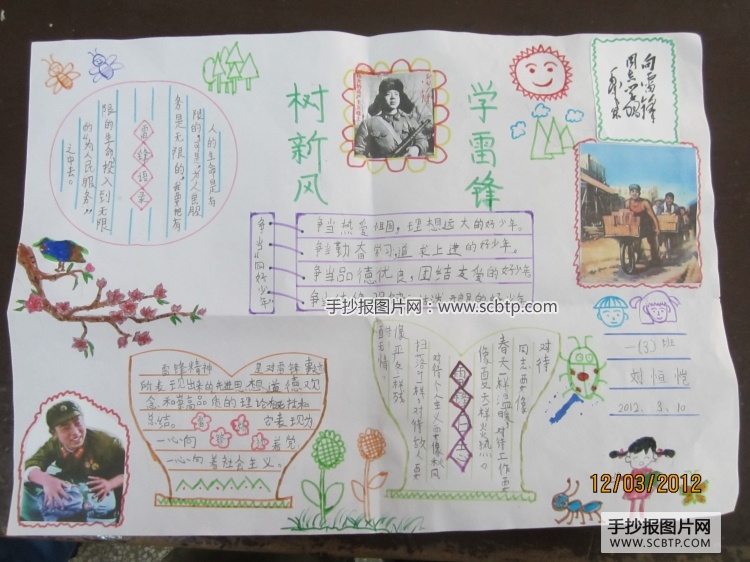 学雷锋
树新风
向雷锋
同志学习
毛泽东
人的生命是有
限的，可是，为人民服
务是无限的，我要把有
雷锋语录
限的生命投入到无限
的“为人民服务”
之中去。
争当“四好少年”
争当热爱祖国，理想远大的好少年。
争当勤奋学习，追求上进的好少年。
争当品德优良，团结友爱的好少年
手抄报图片网：www.scbtp.com
雷锋精神 是对雷锋
所表现出来的先进思想道德观
念和崇高品质的理论
总结。 它表现为
一心向着党
一心向着社会主义。
对待
同志要像
春天一样温暖，对待工作要
像夏天一样火热，
对待个人主义要像秋风
扫落叶一样，对待敌人要
像严冬一样残
酷无情。
一（3）班
刘恒恺
2012.3.10
12/03/2012
手抄报图片网
WWW.SCBTP.COM